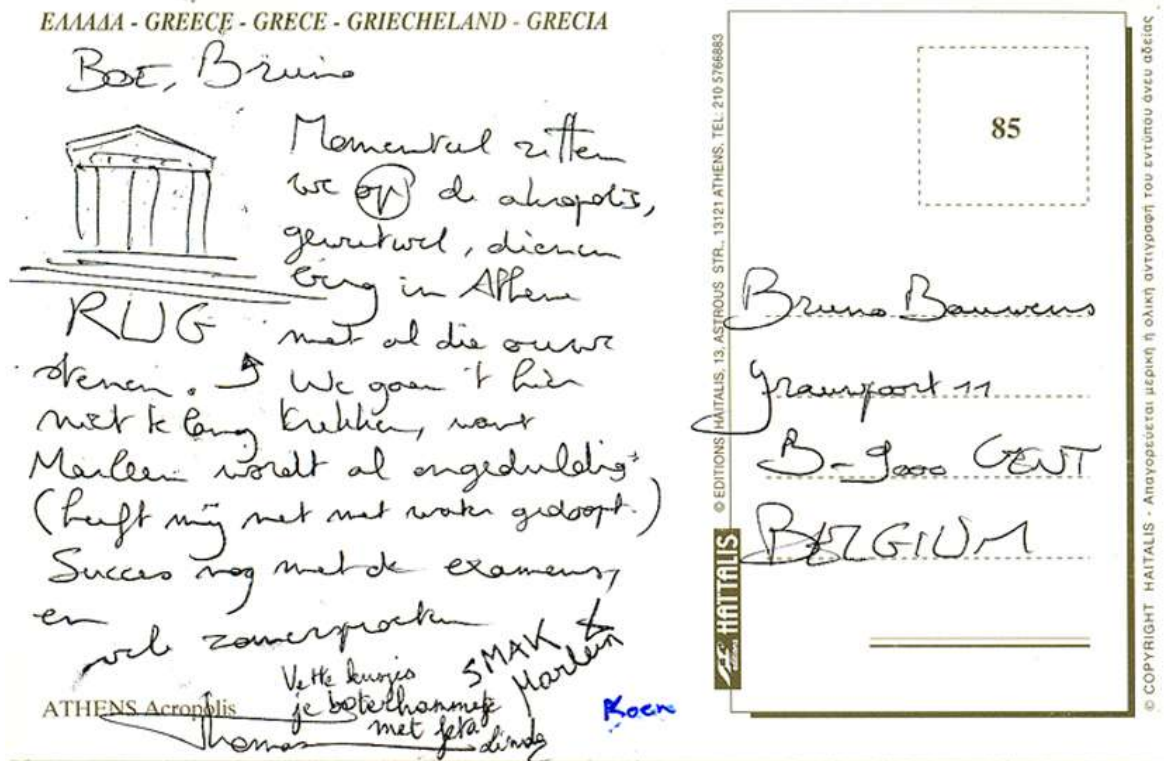 ΕΛΛΑΔΑ - GREECE - GRECE - GRIECHELAND - GRECIA
BOE, Bruno
Momenteel zitten
we op de akropolis,
geweldig
in Athene
RUG
met al die ouwe
stenen. We gaan 't hier
niet te lang trekken, want
Marleen wordt al ongeduldig
(heeft mij net met water gedoopt.)
Succes nog met de examens,
en
vele zomersproeten
SMAK
Marleen
Vette kusjes
je boterhammetje
met feta
Linda
ATHENS Acropolis
Thomas
Koen
© EDITIONS HAITALIS, 13, ASTROUS STR., 13121 ATHENS, TEL: 210 5766883
editions HAITALIS
85
Bruno Bauwens
Grauwpoort 11
B-9000 GENT
BELGIUM
© COPYRIGHT HAITALIS - Απαγορεύεται μερική ή ολική αντιγραφή του εντύπου άνευ αδείας